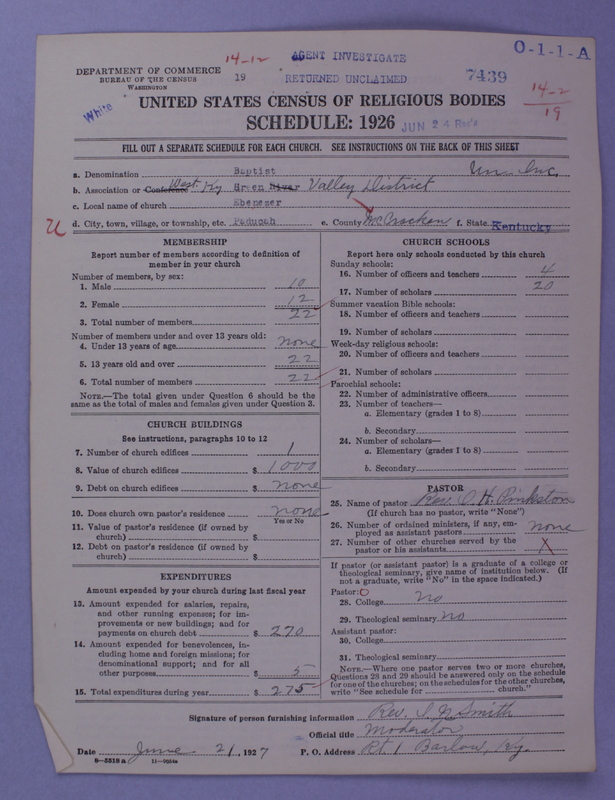 14-12 AGENT INVESTIGATE O-1-1-A
DEPARTMENT OF COMMERCE
BUREAU OF THE CENSUS
WASHINGTON
19 RETURNED UNCLAIMED 7439
White
14-2
19
UNITED STATES CENSUS OF RELIGIOUS BODIES
SCHEDULE: 1926 JUN 24 Rec'd
FILL OUT A SEPARATE SCHEDULE FOR EACH CHURCH. SEE INSTRUCTIONS ON THE BACK OF THIS SHEET
a. Denomination Baptist
b. Association or Conference West Ky Green River Valley District
c. Local name of church Ebenezer
d. City, town, village, or township, etc. Paducah e. County McCracken f. State Kentucky
MEMBERSHIP
Report number of members according to definition of
member in your church
Number of members, by sex:
1. Male 10
2. Female 12
3. Total number of members 22
Number of members under and over 13 years old:
4. Under 13 years of age none
5. 13 years old and over 22
6. Total number of members 22
NOTE.—The total given under Question 6 should be the
same as the total of males and females given under Question 3.
CHURCH BUILDINGS
See instructions, paragraphs 10 to 12
7. Number of church edifices 1
8. Value of church edifices $ 1000
9. Debt on church edifices $ none
10. Does church own pastor's residence none
Yes or No
11. Value of pastor's residence (if owned by
church) $
12. Debt on pastor's residence (if owned by
church) $
EXPENDITURES
Amount expended by your church during last fiscal year
13. Amount expended for salaries, repairs,
and other running expenses; for im-
provements or new buildings; and for
payments on church debt $ 270
14. Amount expended for benevolences, in-
cluding home and foreign missions; for
denominational support; and for all
other purposes $ 5
15. Total expenditures during year $ 275
CHURCH SCHOOLS
Report here only schools conducted by this church
Sunday schools:
16. Number of officers and teachers 4
17. Number of scholars 20
Summer vacation Bible schools:
18. Number of officers and teachers
19. Number of scholars
Week-day religious schools:
20. Number of officers and teachers
21. Number of scholars
Parochial schools:
22. Number of administrative officers
23. Number of teachers—
a. Elementary (grades 1 to 8)
b. Secondary
24. Number of scholars—
a. Elementary (grades 1 to 8)
b. Secondary
PASTOR
25. Name of pastor Rev. O. H. Pinkston
(If church has no pastor, write "None")
26. Number of ordained ministers, if any, em-
ployed as assistant pastors none
27. Number of other churches served by the
pastor or his assistants X
If pastor (or assistant pastor) is a graduate of a college or
theological seminary, give name of institution below. (If
not a graduate, write "No" in the space indicated.)
Pastor:
28. College No
29. Theological seminary No
Assistant pastor:
30. College
31. Theological seminary
NOTE.—Where one pastor serves two or more churches,
Questions 28 and 29 should be answered only on the schedule
for one of the churches; on the schedules for the other churches,
write "See schedule for church."
Signature of person furnishing information Rev. Smith
Official title Moderator
Date June 21, 1927 P. O. Address Rt. 1 Barlow, Ky.
8-5518 a 11-9024a